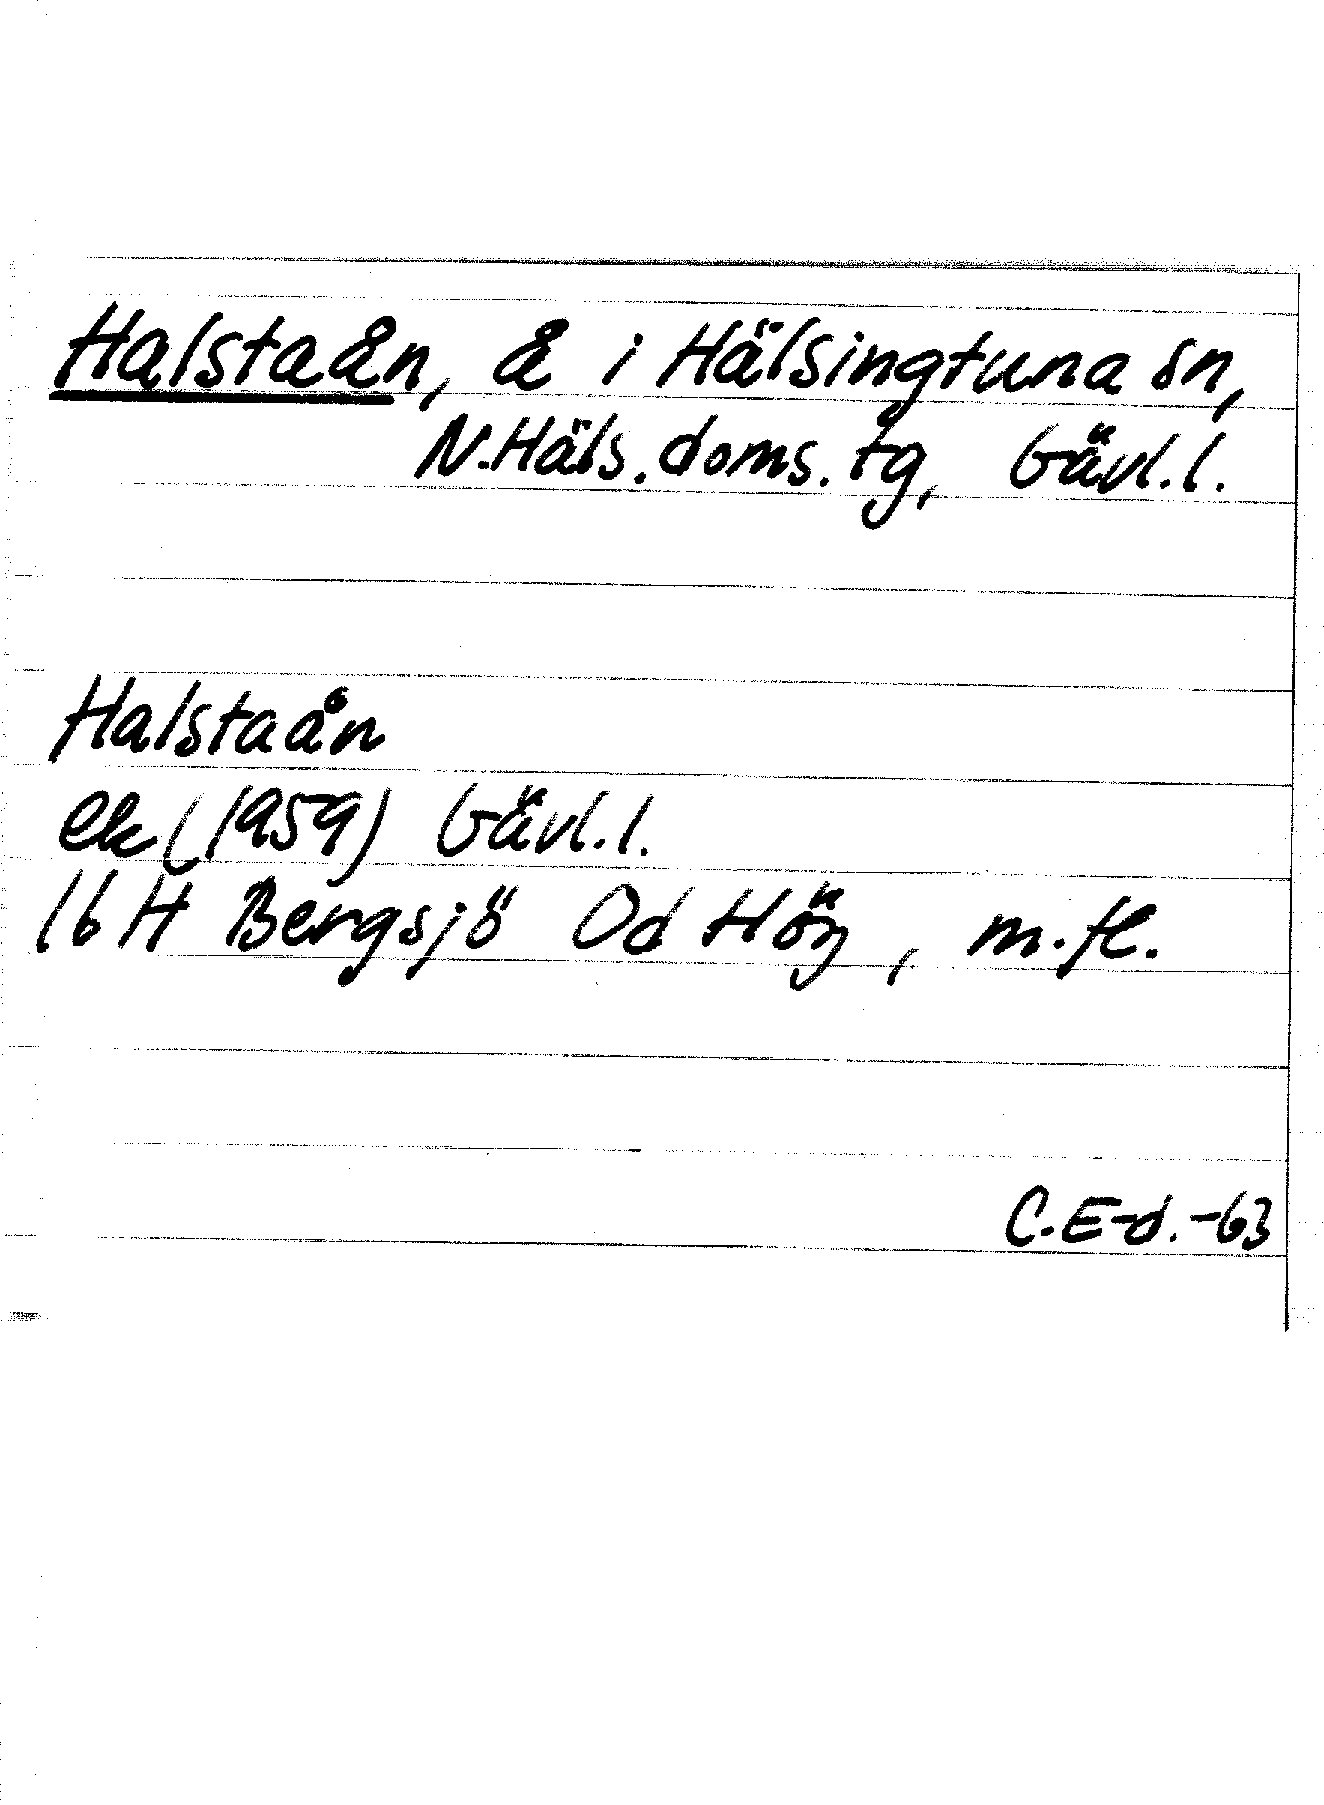 Halstaån, å i Hälsingtuna sn,
N.Häls.doms.tg, Gävl.l.
Halstaån
ek (1959) Gävl.l.
16 H Bergsjö Od Hög, m.fl.
C.E-d.-63